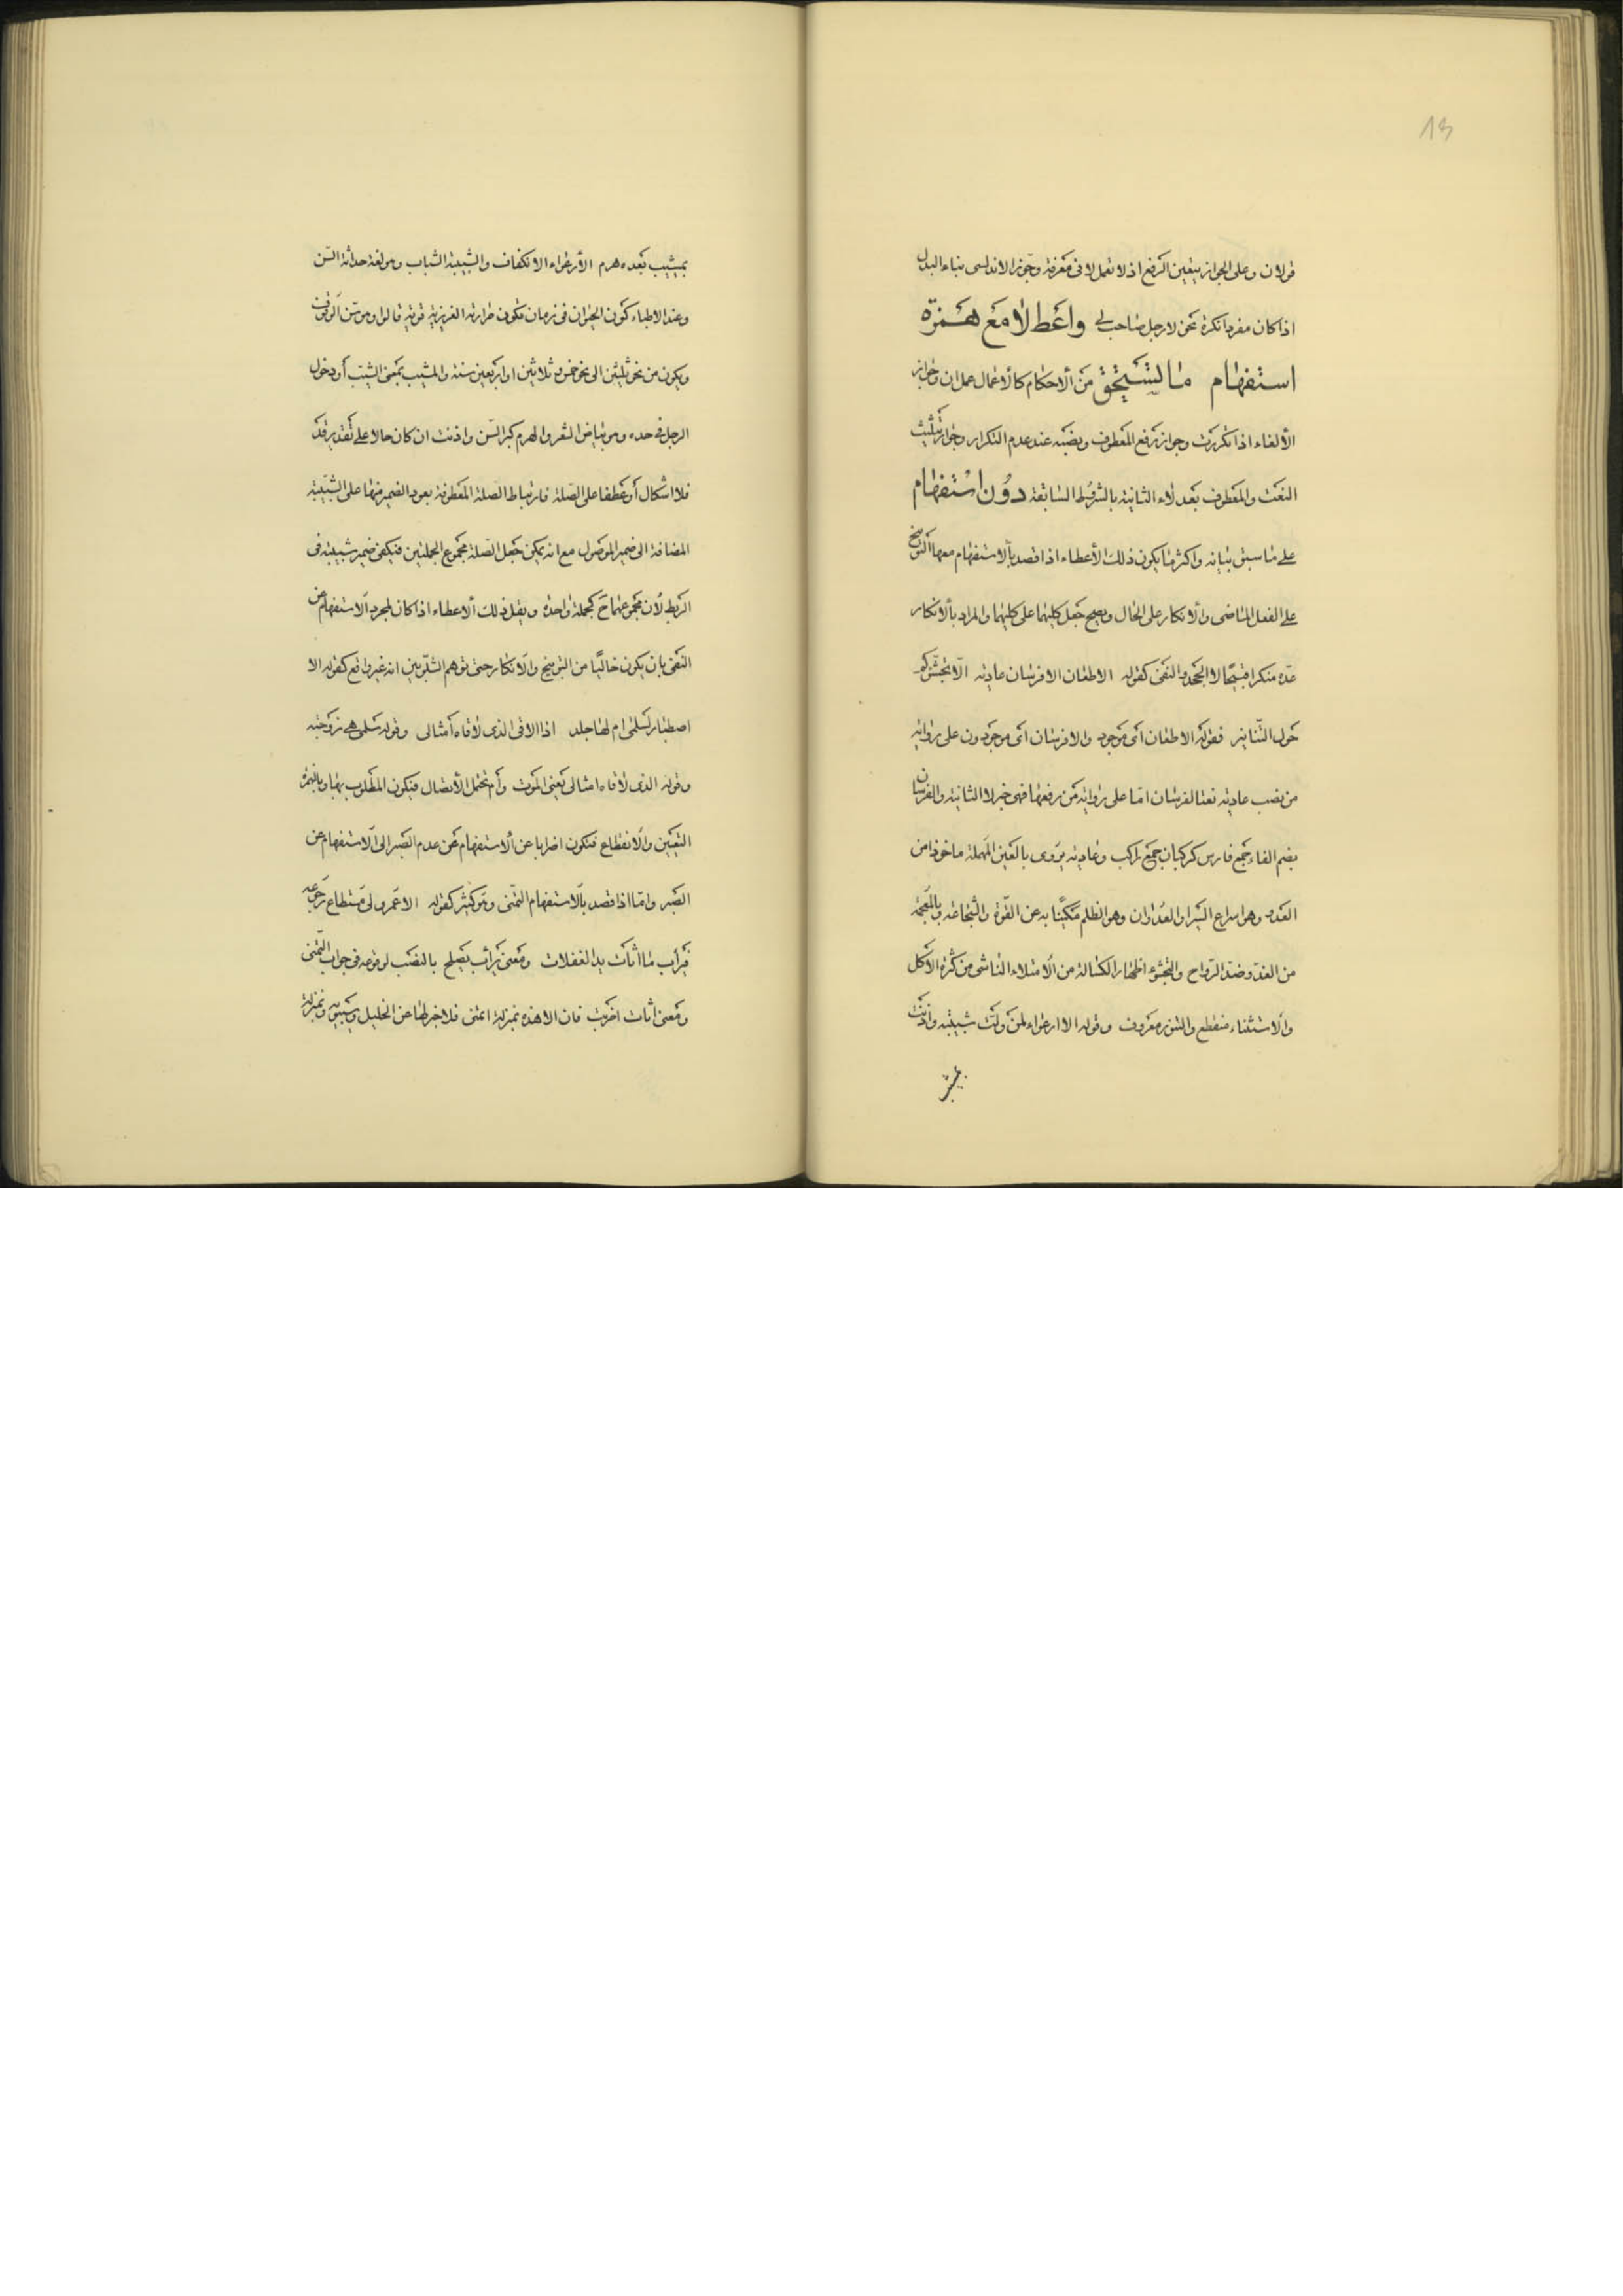 13
قولان وعلى الجواز يتعين الرفع اذ لا تعمل لا فى معرفة وجوز الاندلسى بناء البدل
اذا كان مفردا نكرة نحن لا رجل صاحب لى واعط لا مع همزة
استفهام ما تستحق من الاحكام كالاعمال عمل ان وجواز
الألغاء اذا تكررت وجواز رفع المعطوف ونصبه عند عدم التكرار وجواز تثليث
النعت والمعطوف بعد لاء الثانية بالشرط السابقة دون استفهام
على ما سبق بيانه واكثر ما يكون ذلك الأعطاء اذا قصد بألاستفهام معها التوبيخ
على الفعل الماضى والانكار على الحال ويصح جعل كليهما على كليهما والمراد بألانكار
عده منكرا قبيحا لا الجحد والنفى كقوله الاطعان الا فرسان عادية الا تجشؤكم
حول التنانير فقوله الاطعان اى موجود والا فرسان اى موجودون على رواية
من نصب عادية نعتا لفرسان اما على رواية من رفعها فهى خبر لا الثانية والفرسان
بضم الفاء جمع فارس كركبان جمع راكب وعادية يروى بالعين المهملة ماخوذا من
العدو وهو اسراع السير او العدوان وهو الظلم مكنيا به عن القوة والشجاعة وبالمعجمة
من الغدو ضد الرواح والتجشؤ اظهار الكسالة من الامتلاء الناشى من كثرة الاكل
والاستثناء منقطع والتنور معروف وقوله الا ارعواء لمن ولت شبيبته واذنت
بمشيب
بمشيب بعده هرم الأرعواء الانكفاف والشبيبة الشباب وهو لغة حداثة السن
وعند الاطباء كون الحيوان فى زمان تكون حرارته الغريزية قوية قالوا وهو سن الوقوف
ويكون من نحو ثلثين الى نحو خمس وثلاثين او اربعين سنة والمشيب بمعنى الشيب أو دخول
الرجل فى حده وهو بياض الشعر والهرم كبر السن واذنت ان كان حالا على تقدير قد
فلا اشكال أو عطفا على الصلة فارتباط الصلة المعطوفة بعود الضمير منها على الشبيبة
المضافة الى ضمير الموصول مع انه يمكن جعل الصلة مجموع الجملتين فيكفى ضمير شبيبته فى
الربط لأن مجموعهما ح كجملة واحدة ويقل ذلك ألاعطاء اذا كان لمجرد الاستفهام عن
النفى بان يكون خاليا من التوبيخ والانكار حتى توهم الشلوبين انه غير واقع كقوله الا
اصطبار لسلمى ام لها جلد اذا الاقى الذى لاقاه أمثالى وقوله سلمى هى زوجته
وقوله الذى لاقاه امثالى يعنى الموت وأم تحتمل الأتصال فيكون المطلوب بها وبالهمزة
التعيين والانقطاع فتكون اضرابا عن ألاستفهام عن عدم الصبر الى الاستفهام عن
الصبر واما اذا قصد بالاستفهام التمنى وهو كثير كقوله الا عمر ولى مستطاع رجوعه
فيرأب ما اثأت يد الغفلات ومعنى يرأب يصلح بالنصب لوقوعه فى جواب التمنى
ومعنى اثأت اخربت فان الا هذه بمنزلة اتمنى فلا خبر لها عن الخليل وسيبويه وبمنزلة